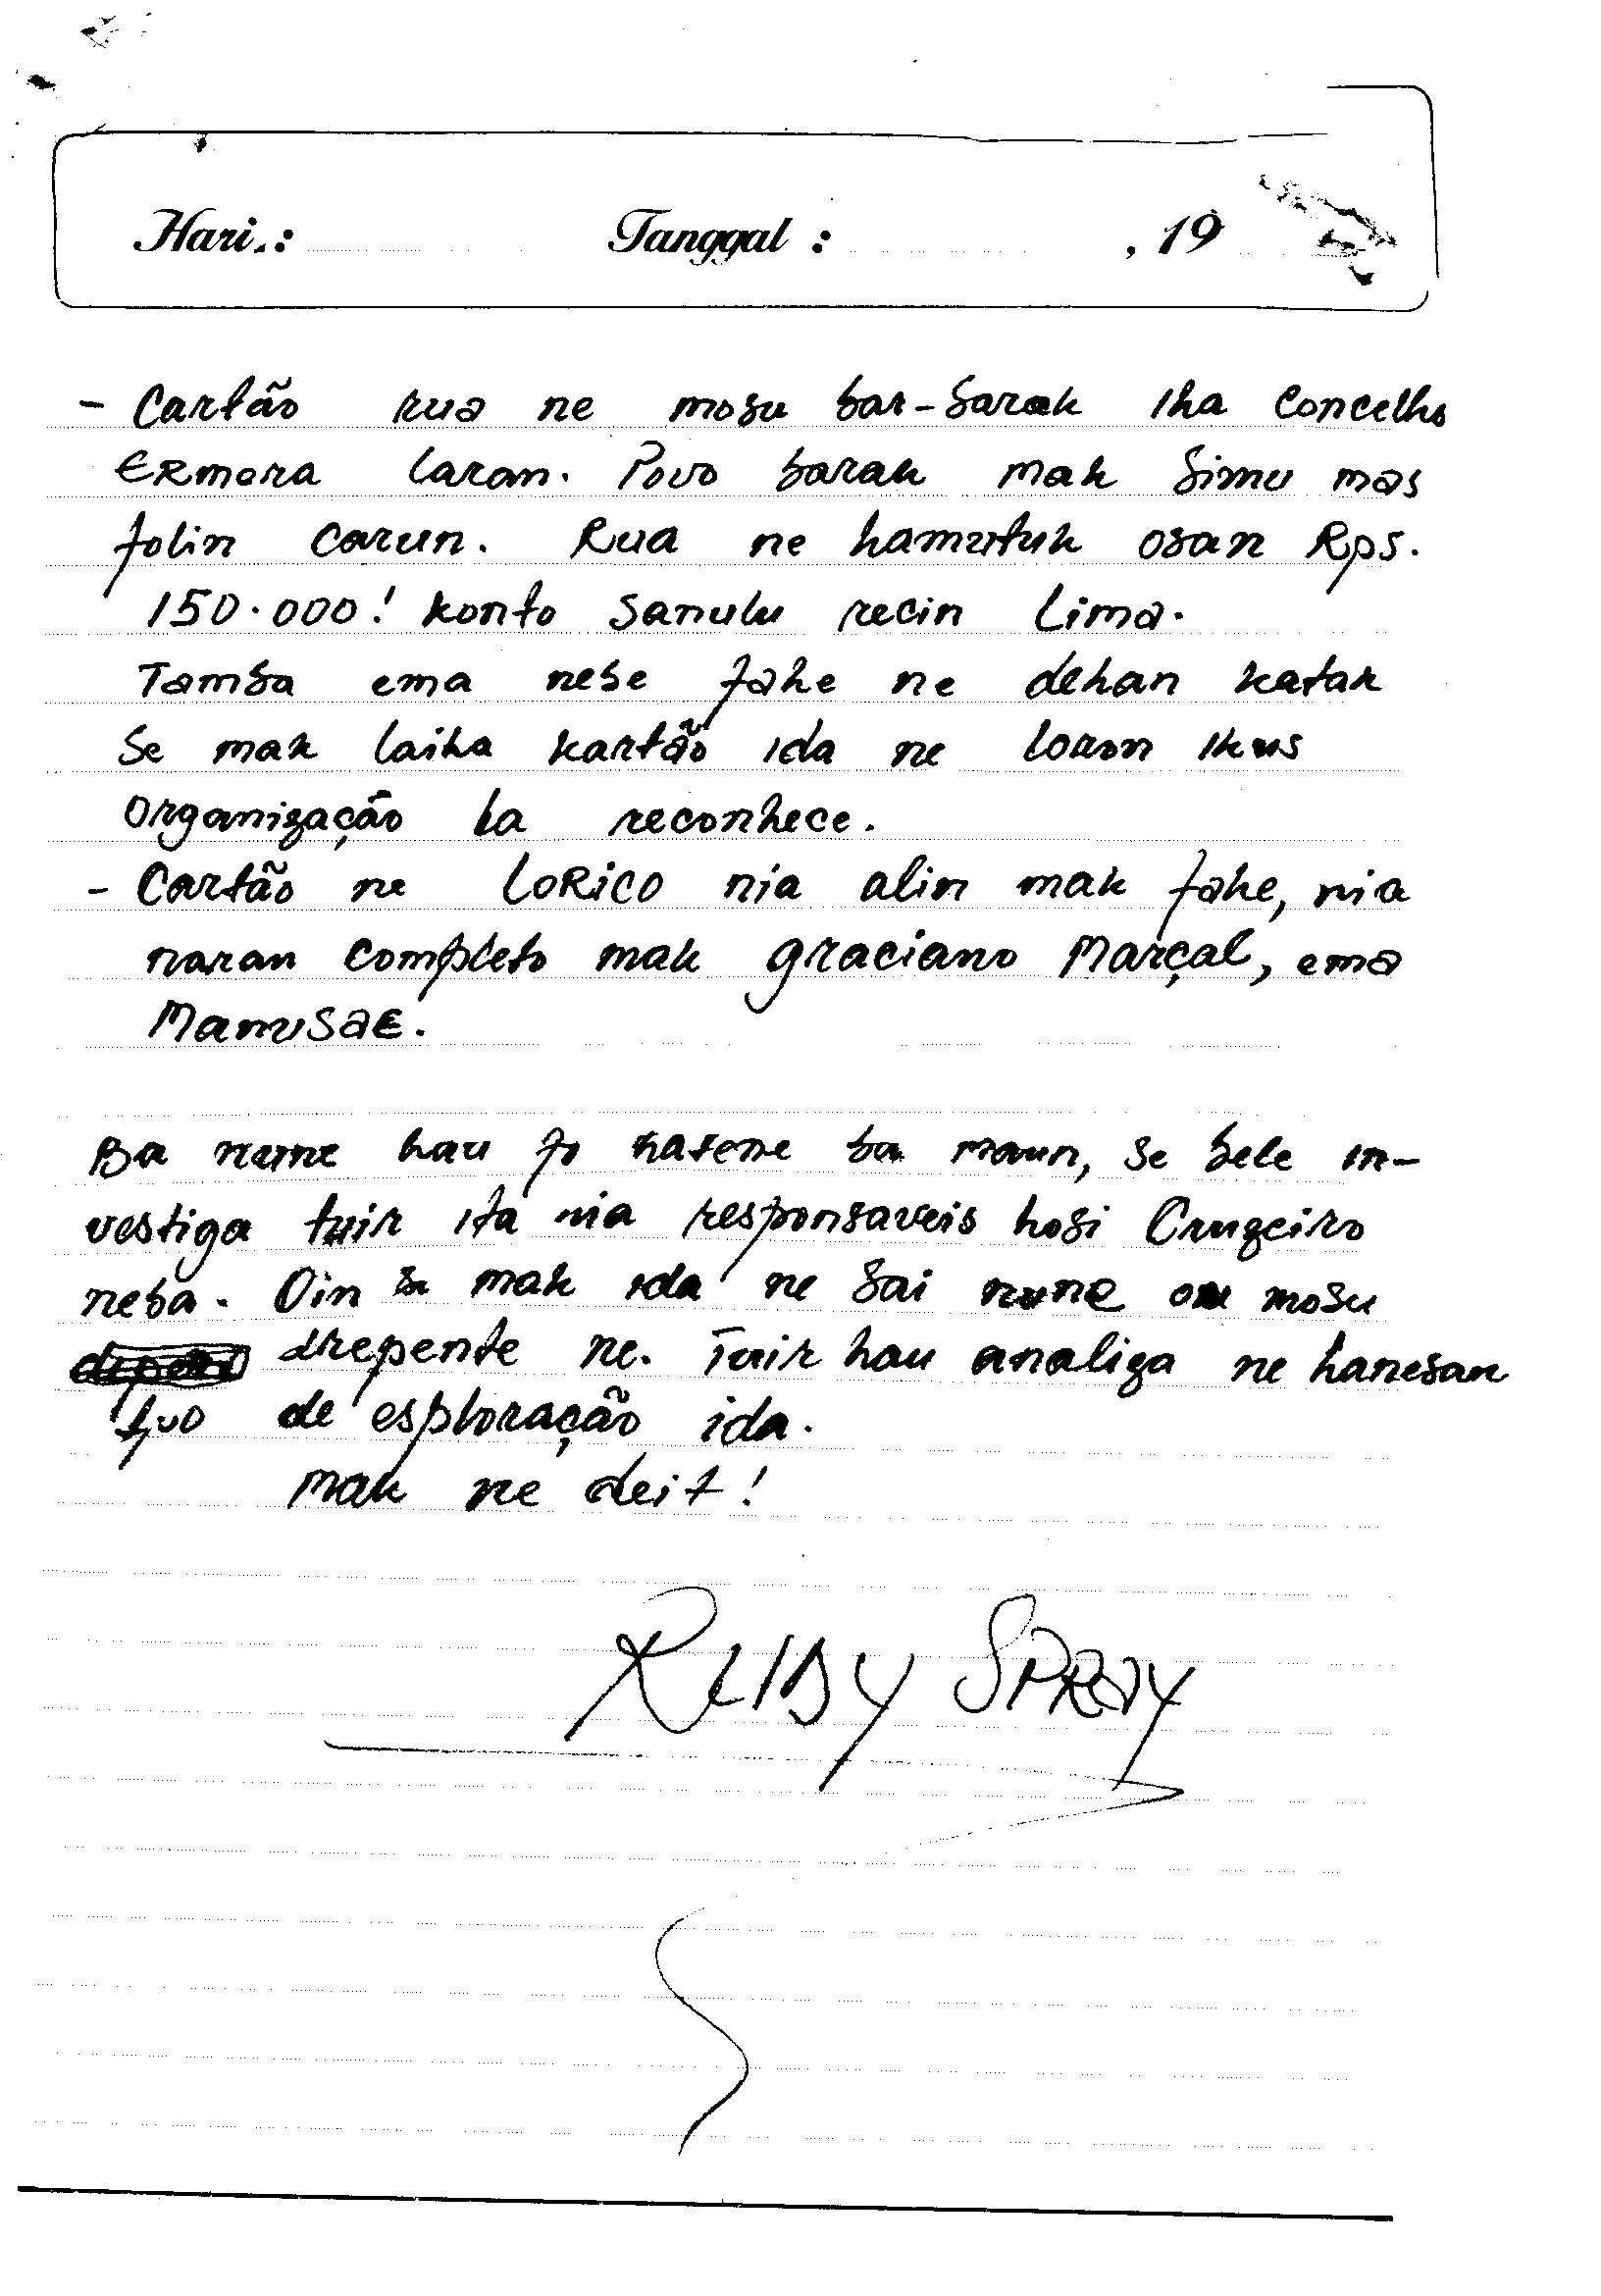 Hari.: Tanggal : , 19
- Cartão rua ne mosu bar-barak iha Concelho
Ermera laran. Povo barak mak simu mas
folin carun. Rua ne hamutuk osan Rps.
150.000! konto sanulu recin lima.
Tamba ema nebe fahe ne dehan katak
Se mak laiha kartão ida ne loron ikus
Organização la reconhece.
- Cartão ne LORICO nia alin mak fahe, nia
naran completo mak Graciano Marçal, ema
Manusae.
Ba nune hau fo hatene ba maun, se bele in-
vestiga tuir ita nia responsaveis hosi Cruzeiro
neba. Oin sa mak ida ne sai nune mosu
drepente ne. Tuir hau analiza ne hanesan
de esploração ida.
mak ne deit!
RUBY SPRAY